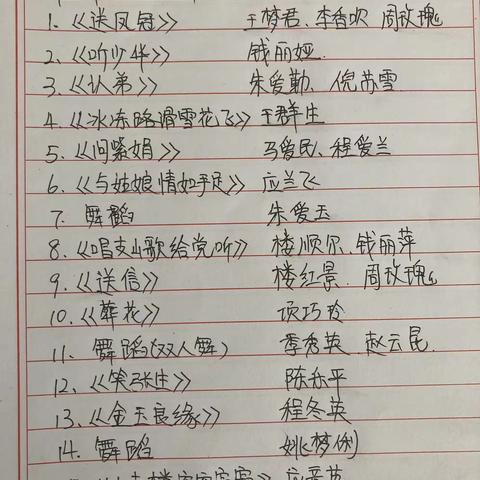 1. 《送凤冠》 王梦君、李香吹 周玫瑰
2. 《听少华》 钱丽娅.
3. 《认弟》 朱爱勤、倪苏雪
4. 《冰冻路滑雪花飞》 王群生
5. 《问紫娟》 马爱民、程爱兰
6. 《与姑娘情如手足》 应兰飞
7. 舞蹈 朱爱玉
8. 《唱支山歌给党听》 楼顺尔、钱丽萍
9. 《送信》 楼红景、周玫瑰
10. 《葬花》 项巧玲
11. 舞蹈(双人舞) 季秀英 赵云昆.
12. 《笑张生》 陈乐平
13. 《金玉良缘》 程冬英
14. 舞蹈 姚梦俐